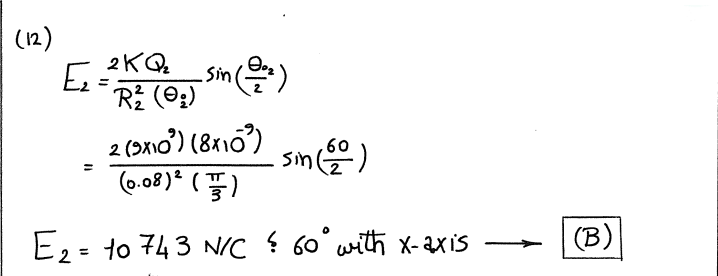 (12)
E₂ = 2KQ₂ / R₂² (θ₂) sin(θ₀₂/2)
= 2(9x10⁹)(8x10⁻⁹) / (0.08)² (π/3) sin(60/2)
E₂ = 10743 N/C & 60° with x-axis → (B)